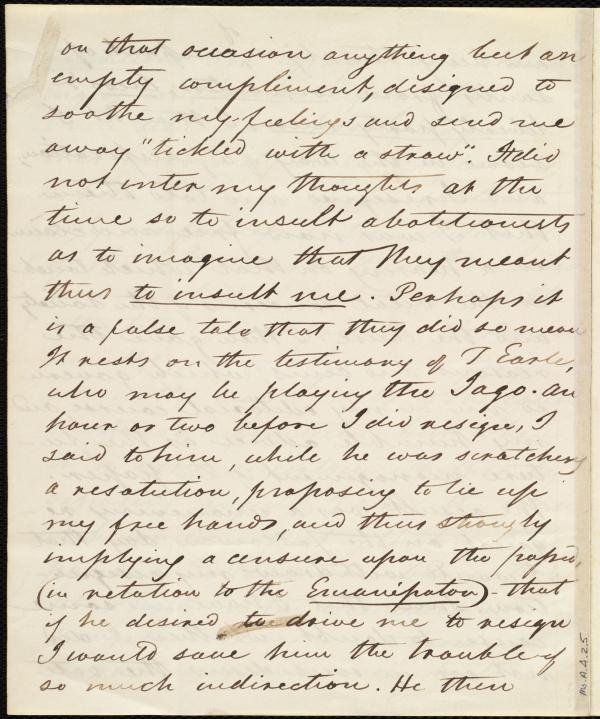 on that occasion anything but an
empty compliment, disigned to
soothe my feelings and send me
away "tickled with a straw". It did
not inter my thoughts at the
time so to insult abolitionists
as to imagine that they meant
thus to insult me. Perhaps it
is a false tale that they did so mean
It rests on the testimony of T Earle,
who may be playing the Iago. An
hour or two before I did resign, I
said to him, while he was scratching
a resolution, proposing to tie up
my free hands, and thus strongly
implying a censure upon the paper,
(in relation to the Emancipator) - that
if he desired to drive me to resign
I would save him the trouble of
so much indirection. He then
Ms.A.4.2.5